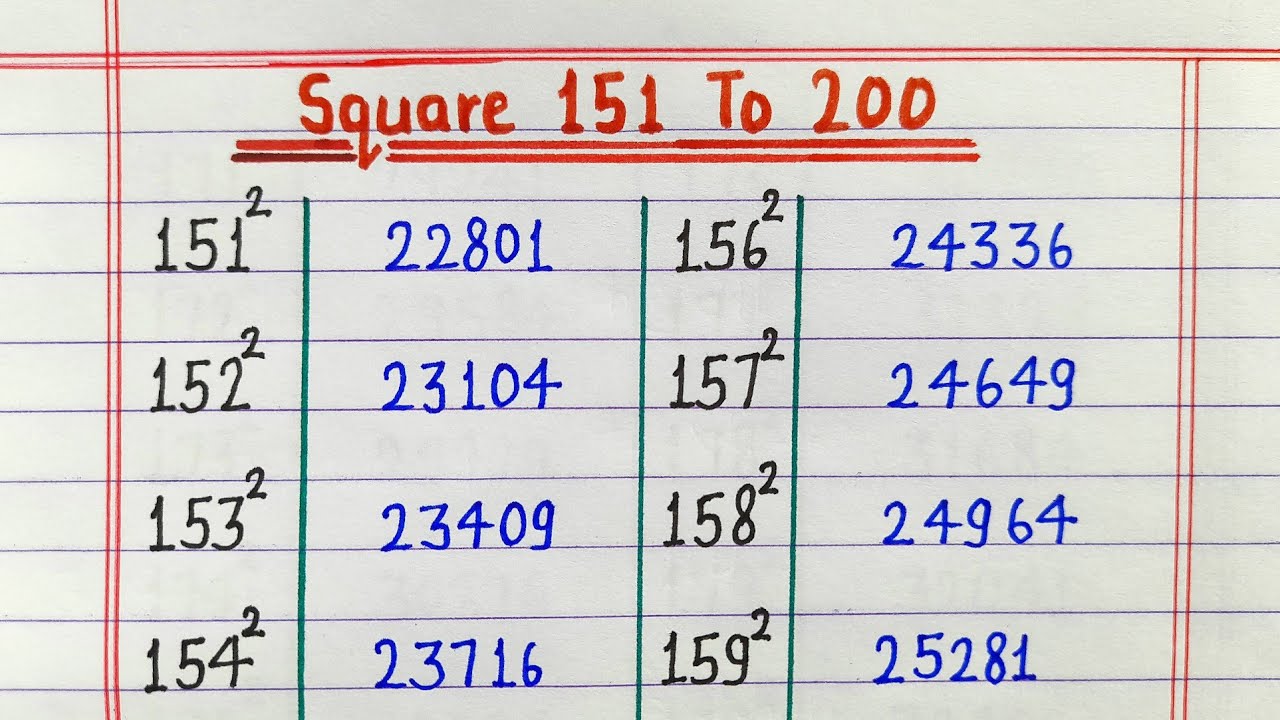 Square 151 To 200
151² 22801 156² 24336
152² 23104 157² 24649
153² 23409 158² 24964
154² 23716 159² 25281